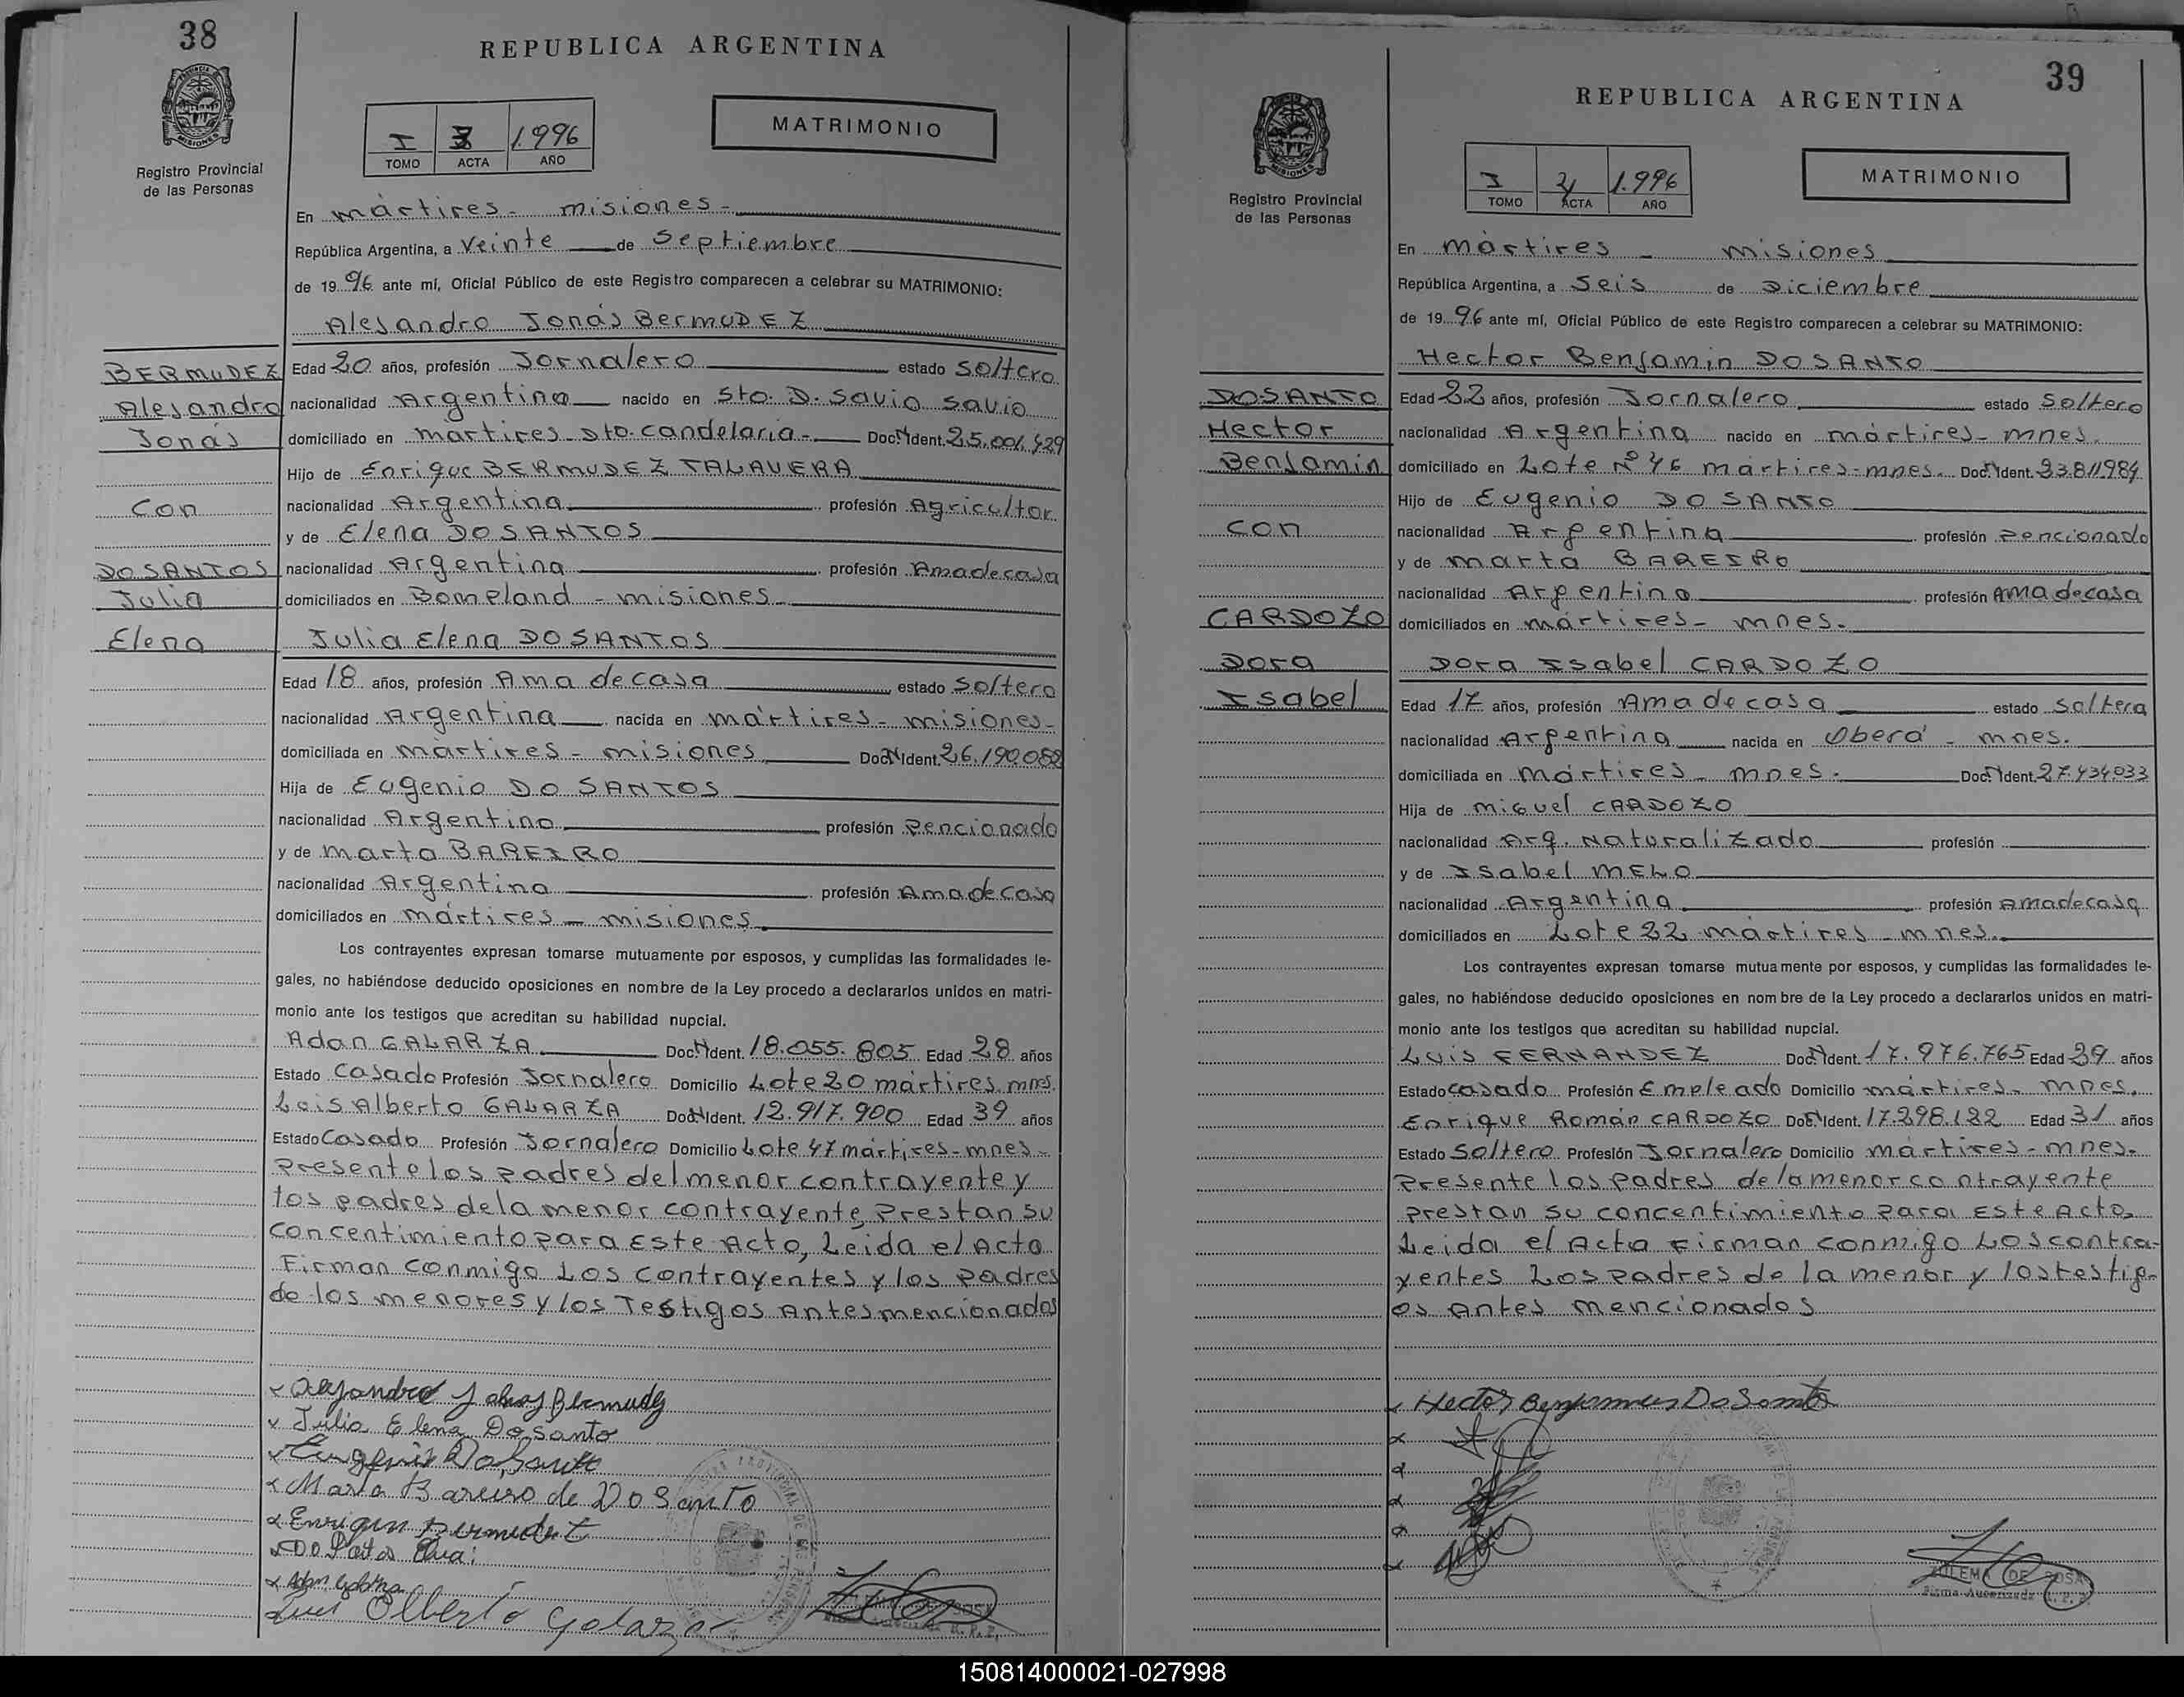 38
REPUBLICA ARGENTINA
PROVINCIA DE
MISIONES
Registro Provincial
de las Personas
I 3 1.996
TOMO ACTA AÑO
MATRIMONIO
En mártires - misiones -
República Argentina, a Veinte de Septiembre
de 19 96 ante mí, Oficial Público de este Registro comparecen a celebrar su MATRIMONIO:
Alejandro Jonás BermUDEZ
BERMUDEZ
Alejandro
Jonás
Con
DOSANTOS
Julia
Elena
Edad 20 años, profesión Jornalero estado Soltero
nacionalidad Argentina nacido en Sto. D. Savio Savio
domiciliado en mártires - Dto. candelaria - Doc. N Ident. 25.001.429
Hijo de Enrique BERMUDEZ TALAVERA
nacionalidad Argentina profesión Agricultor
y de Elena DOSANTOS
nacionalidad Argentina profesión Amadecasa
domiciliados en Bompland - misiones
Julia Elena DOSANTOS
Edad 18 años, profesión Ama de casa estado Soltera
nacionalidad Argentina nacida en mártires - misiones -
domiciliada en mártires - misiones Doc. N Ident. 26.190.082
Hija de Eugenio DO SANTOS
nacionalidad Argentino profesión Pencionado
y de marta BAREIRO
nacionalidad Argentina profesión Amadecasa
domiciliados en mártires - misiones
Los contrayentes expresan tomarse mutuamente por esposos, y cumplidas las formalidades le-
gales, no habiéndose deducido oposiciones en nombre de la Ley procedo a declararlos unidos en matri-
monio ante los testigos que acreditan su habilidad nupcial.
Adan GALARZA Doc. N Ident. 18.055.805 Edad 28 años
Estado Casado Profesión Jornalero Domicilio Lote 20 mártires. mnes.
Luis Alberto GALARZA Doc. N Ident. 12.917.900 Edad 39 años
Estado Casado Profesión Jornalero Domicilio Lote 47 mártires - mnes -
Presente los padres del menor contrayente y
los padres dela menor contrayente, Prestan su
concentimiento para Este Acto, Leida el Acta
Firman conmigo Los contrayentes y los padres
de los menores y los Testigos Antes mencionados
x Alejandro Jonas Bermudez
x Julia Elena Dosanto
x Eugenio Dosanto
x Marta Bareiro de Do Santo
x Enrique Bermudez
x Do Santos
x Adan Galarza
Luis Alberto Galarza
SOSA
R. P. P.
39
REPUBLICA ARGENTINA
MISIONES
Registro Provincial
de las Personas
I 4 1.996
TOMO ACTA AÑO
MATRIMONIO
En mártires - misiones
República Argentina, a Seis de Diciembre
de 19 96 ante mí, Oficial Público de este Registro comparecen a celebrar su MATRIMONIO:
Hector Benjamin DO SANTO
DOSANTO
Hector
Benjamin
con
CARDOZO
Dora
Isabel
Edad 22 años, profesión Jornalero estado Soltero
nacionalidad Argentina nacido en mártires - mnes.
domiciliado en Lote Nº 46 mártires - mnes. Doc. N Ident. 23.811.984
Hijo de Eugenio DO SANTO
nacionalidad Argentina profesión Pencionado
y de marta BAREIRO
nacionalidad Argentina profesión Ama decasa
domiciliados en mártires - mnes.
Dora Isabel CARDOZO
Edad 17 años, profesión Ama de casa estado Soltera
nacionalidad Argentina nacida en Oberá - mnes.
domiciliada en mártires - mnes. Doc. N Ident. 27.434.033
Hija de miguel CARDOZO
nacionalidad Arg. Naturalizado profesión
y de Isabel MELO
nacionalidad Argentina profesión Amadecasa
domiciliados en Lote 22 mártires - mnes.
Los contrayentes expresan tomarse mutuamente por esposos, y cumplidas las formalidades le-
gales, no habiéndose deducido oposiciones en nombre de la Ley procedo a declararlos unidos en matri-
monio ante los testigos que acreditan su habilidad nupcial.
Luis FERNANDEZ Doc. N Ident. 17.976.765 Edad 29 años
Estado casado Profesión Empleado Domicilio mártires - mnes.
Enrique Román CARDOZO Doc. N Ident. 17.298.122 Edad 31 años
Estado Soltero Profesión Jornalero Domicilio mártires - mnes.
Presente los padres de la menor contrayente
prestan su concentimiento para Este Acto,
Leida el Acta Firman conmigo Los contra-
yentes Los padres de la menor y los testig-
os Antes mencionados
x Hector Benjamin Do Santo
ZULEMA DE SOSA
Firma Autorizada R. P. P.
150814000021-027998